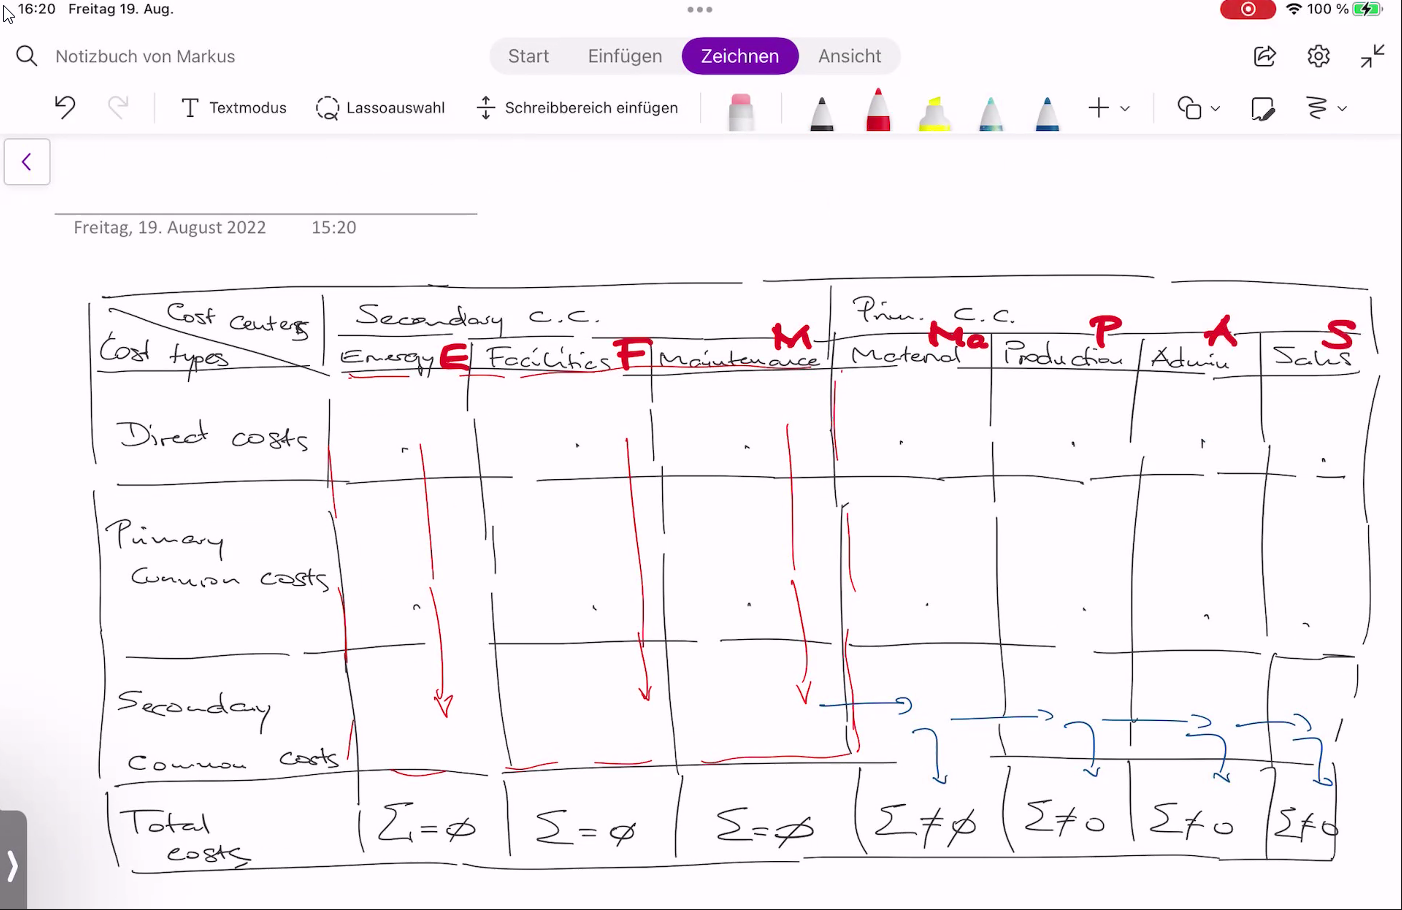 16:20 Freitag 19. Aug.
100 %
Notizbuch von Markus
Start Einfügen Zeichnen Ansicht
Textmodus Lassoauswahl Schreibbereich einfügen
Freitag, 19. August 2022 15:20
Cost centers
Cost types
Secondary C.C.
Prim. C.C.
Energy E Facilities F Maintenance M Material Ma Production P Admin A Sales S
Direct costs
Primary
Common costs
Secondary
Common costs
Total
costs
Σ=ø Σ=ø Σ=ø Σ≠ø Σ≠0 Σ≠0 Σ≠0